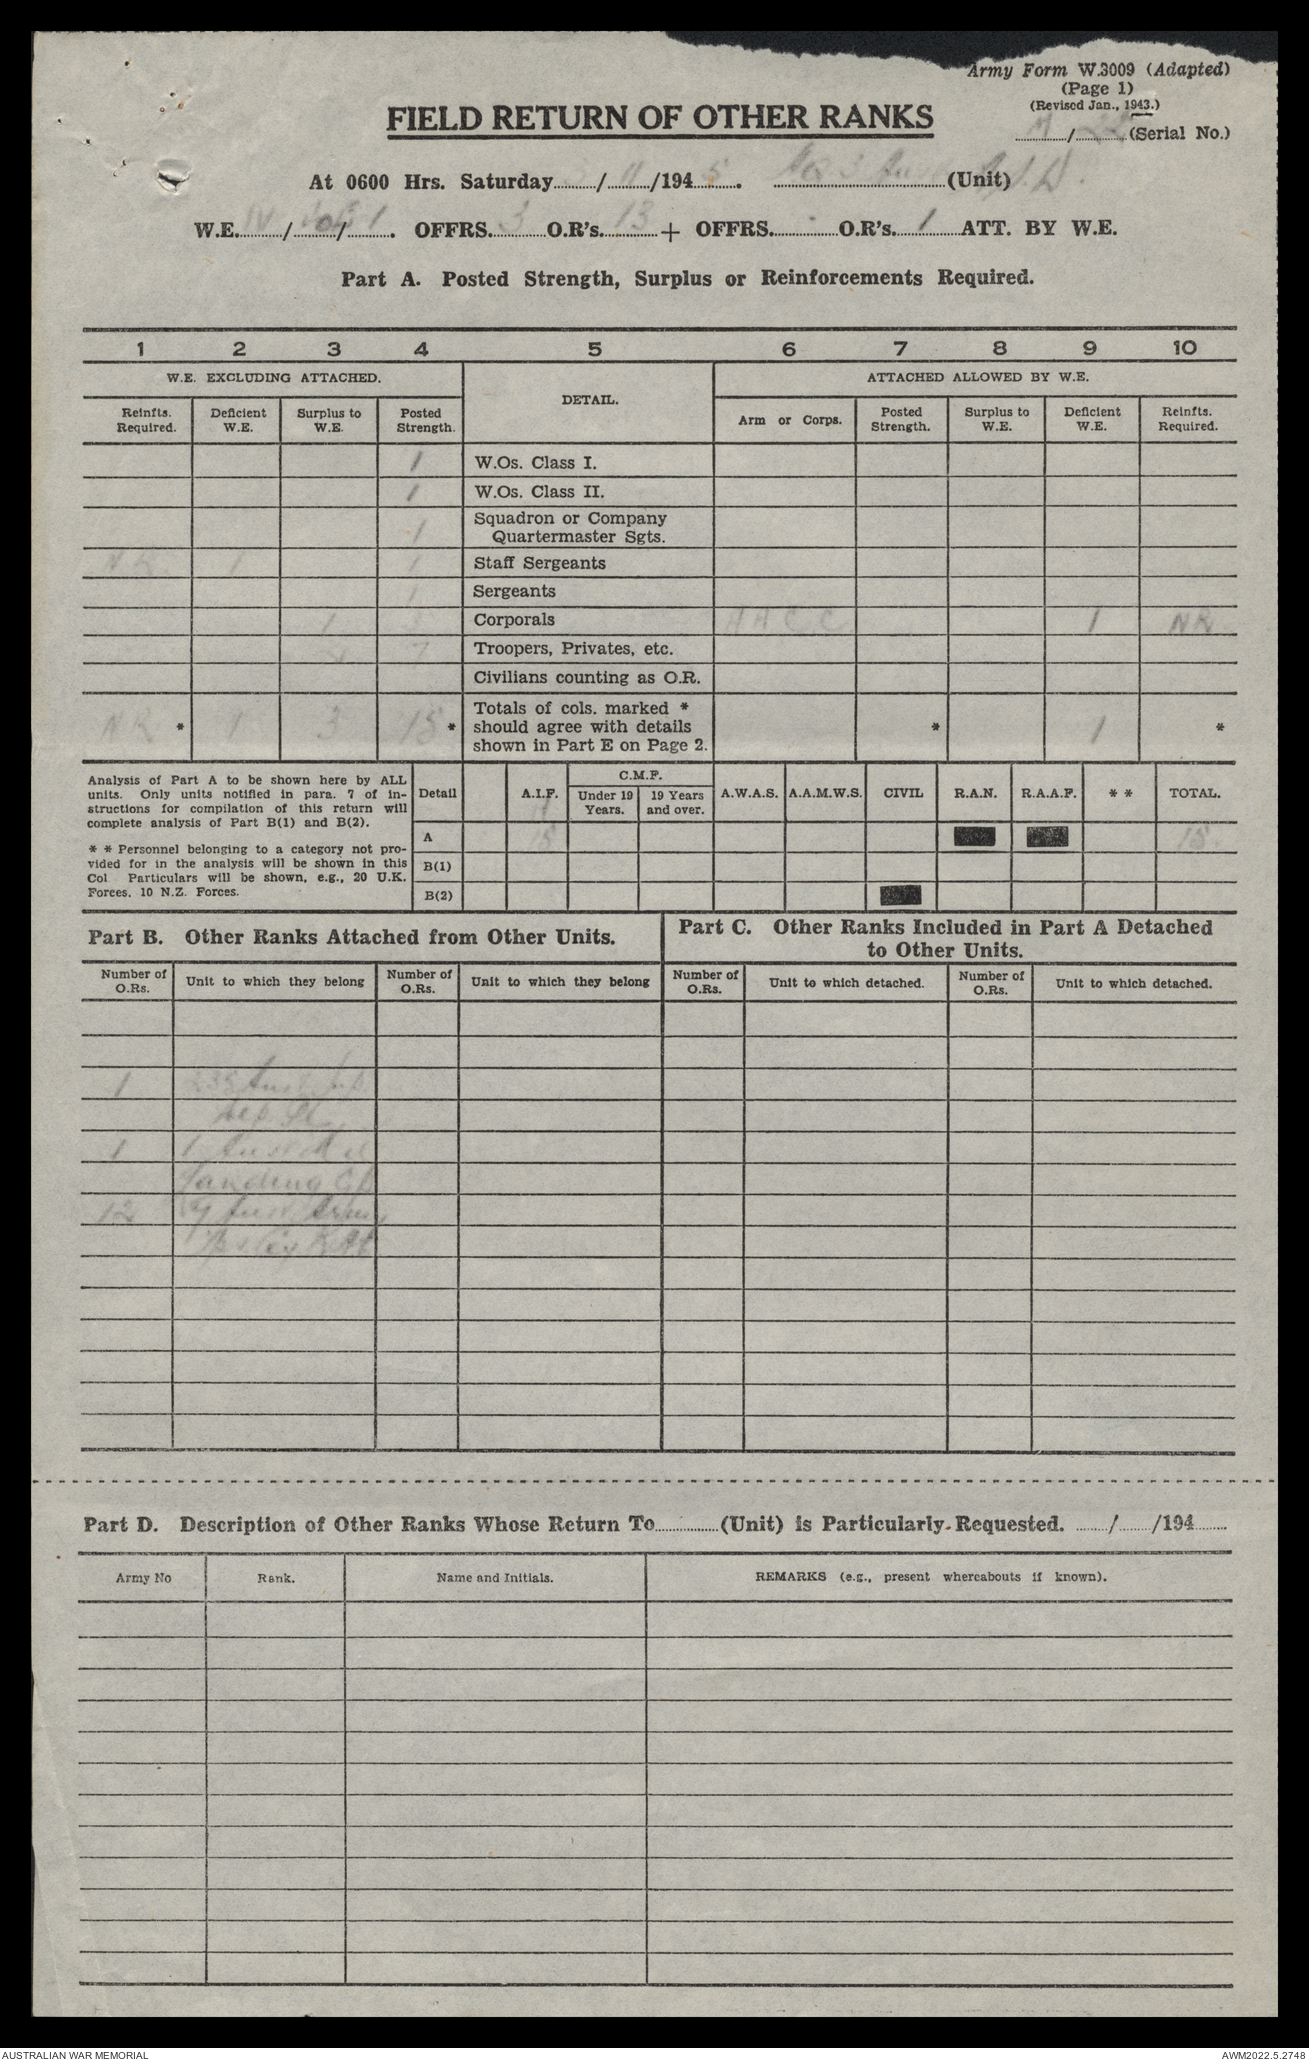 Army Form W.3009 (Adapted)
(Page 1)
(Revised Jan., 1943.)
/ (Serial No.)
FIELD RETURN OF OTHER RANKS
At 0600 Hrs. Saturday / 11 /1945. (Unit)
W.E. IV / / 1 . OFFRS. 3 O.R's. 13 + OFFRS. O.R's. 1 ATT. BY W.E.
Part A. Posted Strength, Surplus or Reinforcements Required.
1 2 3 4 5 6 7 8 9 10
W.E. EXCLUDING ATTACHED. DETAIL. ATTACHED ALLOWED BY W.E.
Reinfts. Required. Deficient W.E. Surplus to W.E. Posted Strength. Arm or Corps. Posted Strength. Surplus to W.E. Deficient W.E. Reinfts. Required.
1 W.Os. Class I.
1 W.Os. Class II.
1 Squadron or Company
Quartermaster Sgts.
NR 1 1 Staff Sergeants
1 Sergeants
1 3 Corporals AACC 1 NR
7 Troopers, Privates, etc.
Civilians counting as O.R.
NR * 1 3 15 * Totals of cols. marked * * 1 *
should agree with details
shown in Part E on Page 2.
Analysis of Part A to be shown here by ALL
units. Only units notified in para. 7 of in-
structions for compilation of this return will
complete analysis of Part B(1) and B(2).
* * Personnel belonging to a category not pro-
vided for in the analysis will be shown in this
Col Particulars will be shown, e.g., 20 U.K.
Forces. 10 N.Z. Forces.
Detail A.I.F. C.M.F. Under 19 Years. 19 Years and over. A.W.A.S. A.A.M.W.S. CIVIL R.A.N. R.A.A.F. * * TOTAL.
A 15 15
B(1)
B(2)
Part B. Other Ranks Attached from Other Units.
Part C. Other Ranks Included in Part A Detached
to Other Units.
Number of O.Rs. Unit to which they belong Number of O.Rs. Unit to which they belong Number of O.Rs. Unit to which detached. Number of O.Rs. Unit to which detached.
1 Aust
1 1 Aust
Landing
12 Aust Army
Part D. Description of Other Ranks Whose Return To (Unit) is Particularly Requested. / /194
Army No Rank. Name and Initials. REMARKS (e.g., present whereabouts if known).
AUSTRALIAN WAR MEMORIAL AWM2022.5.2748